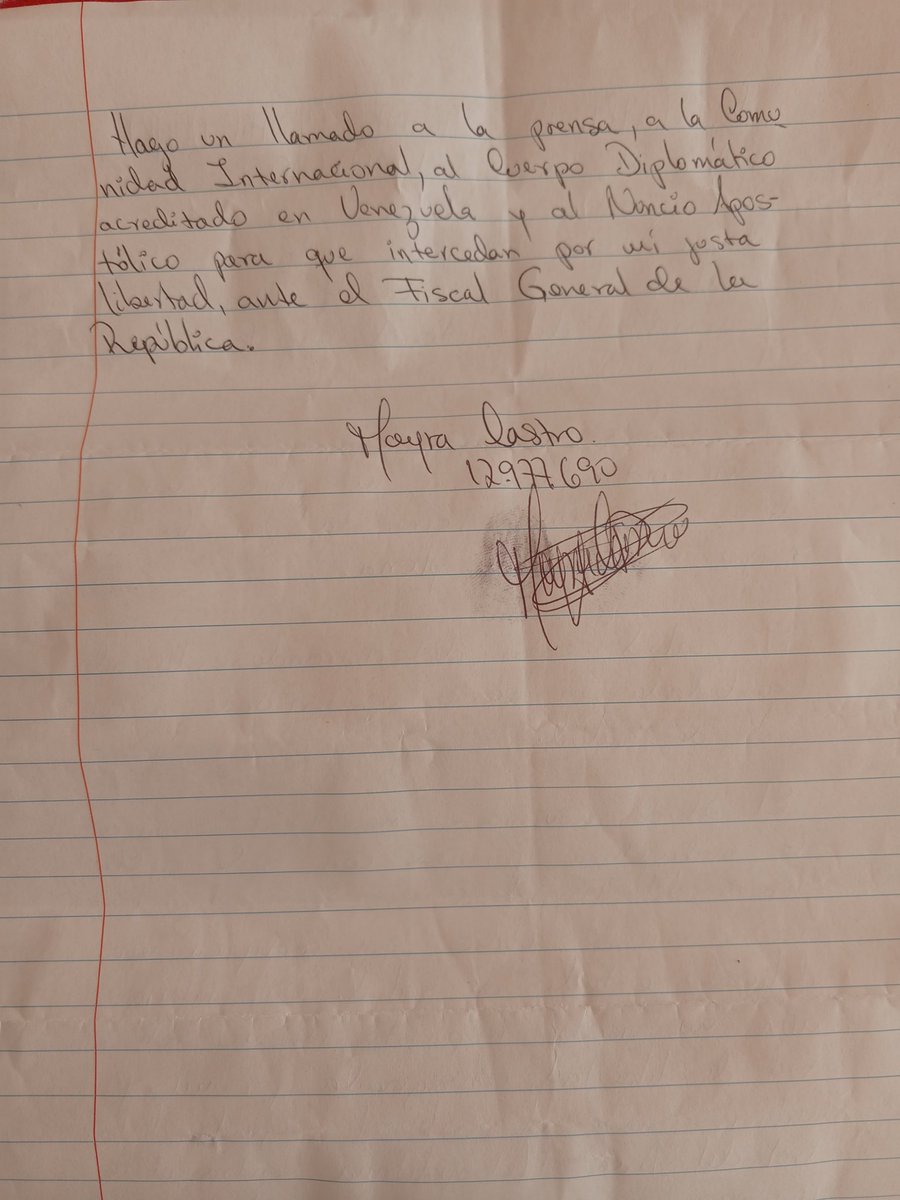 Hago un llamado a la prensa, a la Comu
nidad Internacional, al Cuerpo Diplomático
acreditado en Venezuela y al Nuncio Apos-
tólico para que intercedan por mi justa
libertad, ante el Fiscal General de la
República.
Mayra Castro.
12.977.690